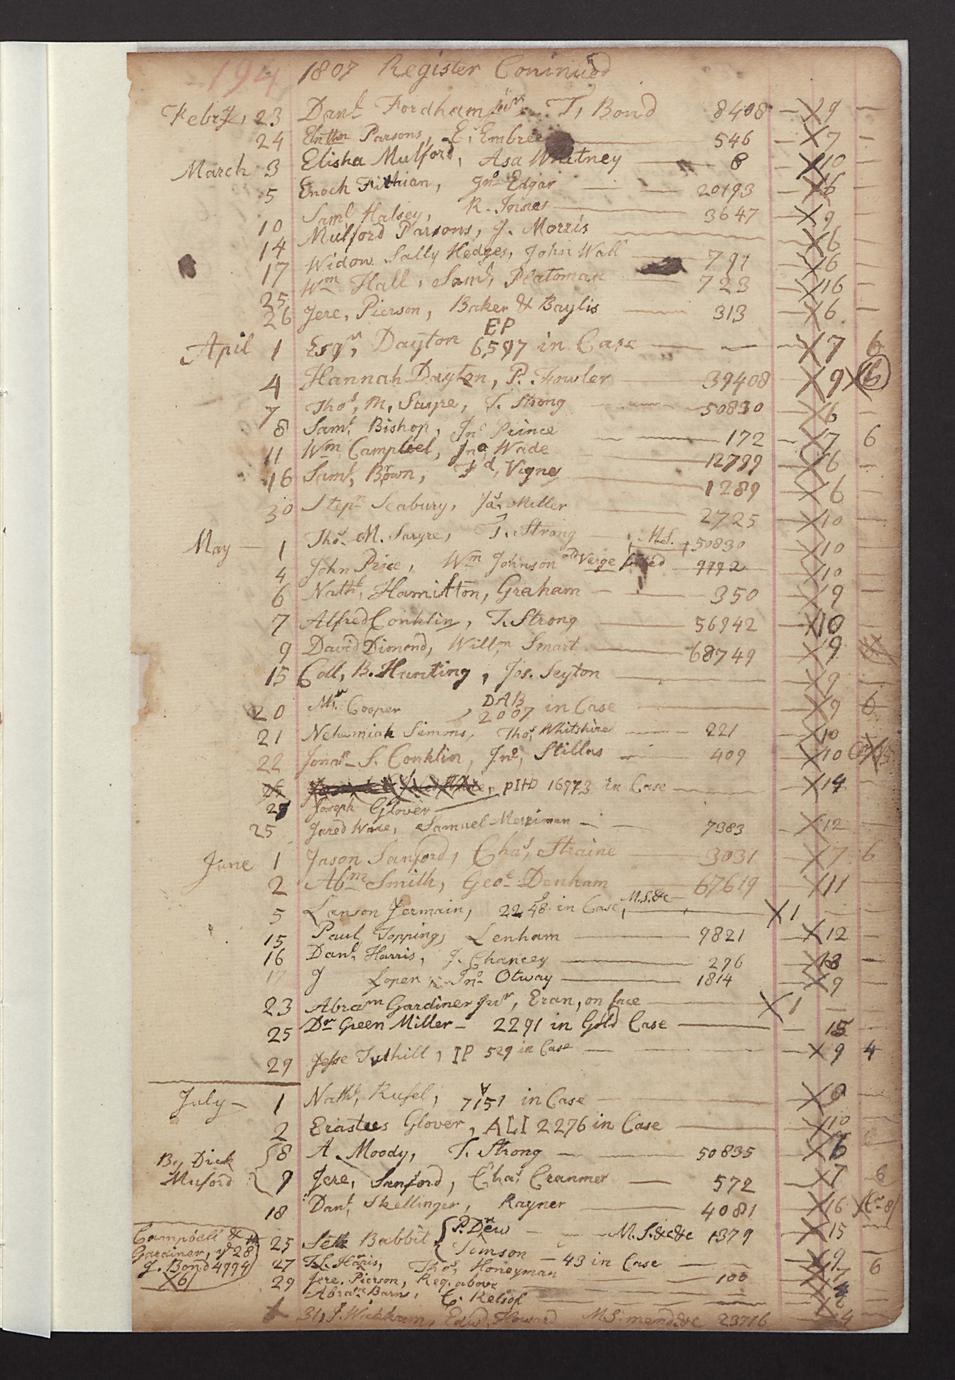 194 1807 Register Coninued
Febry, 23 Danl Fordham Junr T, Bond 8408 X 9
24 Parsons, E. Embree 546 X 7
March 3 Elisha Mulford, Asa Whitney 8 X 10
5 Enoch Fithian, Jno Edgar 20193 X 6
10 Saml Halsey, R. Joines 3647 X 9
14 Mulford Parsons, J. Morris X 6
17 Widow Sally Hedges, John Wall 791 X 6
25 Wm Hall, Saml, 723 X 16
26 Jere, Pierson, Baker & Baylis 313 X 6
EP
April 1 Esqr, Dayton 6597 in Case X 7 6
4 Hannah Dayton, P. Fowler 39408 X 9 X 6
7 Thos, M, Sayre, T. Strong 50830 X 6
8 Saml Bishop, Jno Prince 172 X 7 6
11 Wm Campbel, Jno Wade 12799 X 6
16 Saml, Brown, Vigne 1289 X 6
30 Stepn Seabury, Jas Miller 2725 X 10
May 1 Thos M. Sayre, T. Strong M.S. 50830 X 10
4 John Price, Wm Johnson old Verge 9992 X 10
6 Nathl, Hamilton, Graham 350 X 9
7 Alfred Conklin, T. Strong 56942 X 10
9 David Dimond, Willm Smart 68749 X 9
15 Coll, B. Hunting, Jos. Seyton X 9
DAB
20 Mr Cooper 2007 in Case X 9 6
21 Nehemiah Simons, Thos Whitshire 221 X 10
22 Jonan S. Conklin, Jno, Stillas 409 X 10
PIHD 16773 in Case X 14
Joseph Glover
25 Jared Ware, Samuel Merriman 7383 X 12
June 1 Jason Sanford, Chas, Straine 3031 X 7 6
2 Abm Smith, Geoe Denham 67619 X 11
5 Lanson Jermain, 2248 in Case, M.S.&c X 1
15 Paul Topping, Lenham 9821 X 12
16 Danl Harris, J. Chancey 296 X 13
17 J Loper Jno Otway 1814 X 9
23 Abram Gardiner Junr, Eran, on face X 1
25 Dr Green Miller 2291 in Gold Case 15
29 Jesse Tuthill, IP 529 in Case X 9 4
July 1 Nathl, Rusel, 7151 in Case X 8
2 Erastus Glover, ALI 2276 in Case X 10
By Dick Muford
8 A. Moody, T. Strong 50835 X 6
9 Jere, Sanford, Chas Cranmer 572 X 7 6
18 Danl Skellinger, Rayner 4081 X 16
Campbell &
Gardiner, 28
J. Bond 4794
X6
25 Seth Babbit P. Dew M.S.&c&c 1379 X 15
Simson 43 in Case
27 Thos Honeyman X 9 6
29 Jere. Pierson, Reg. above 100 X 7
Abram Barns, C. Relsof
31, J. Wickham, Edwd, Howard M.S. mend&c 23716 X 4